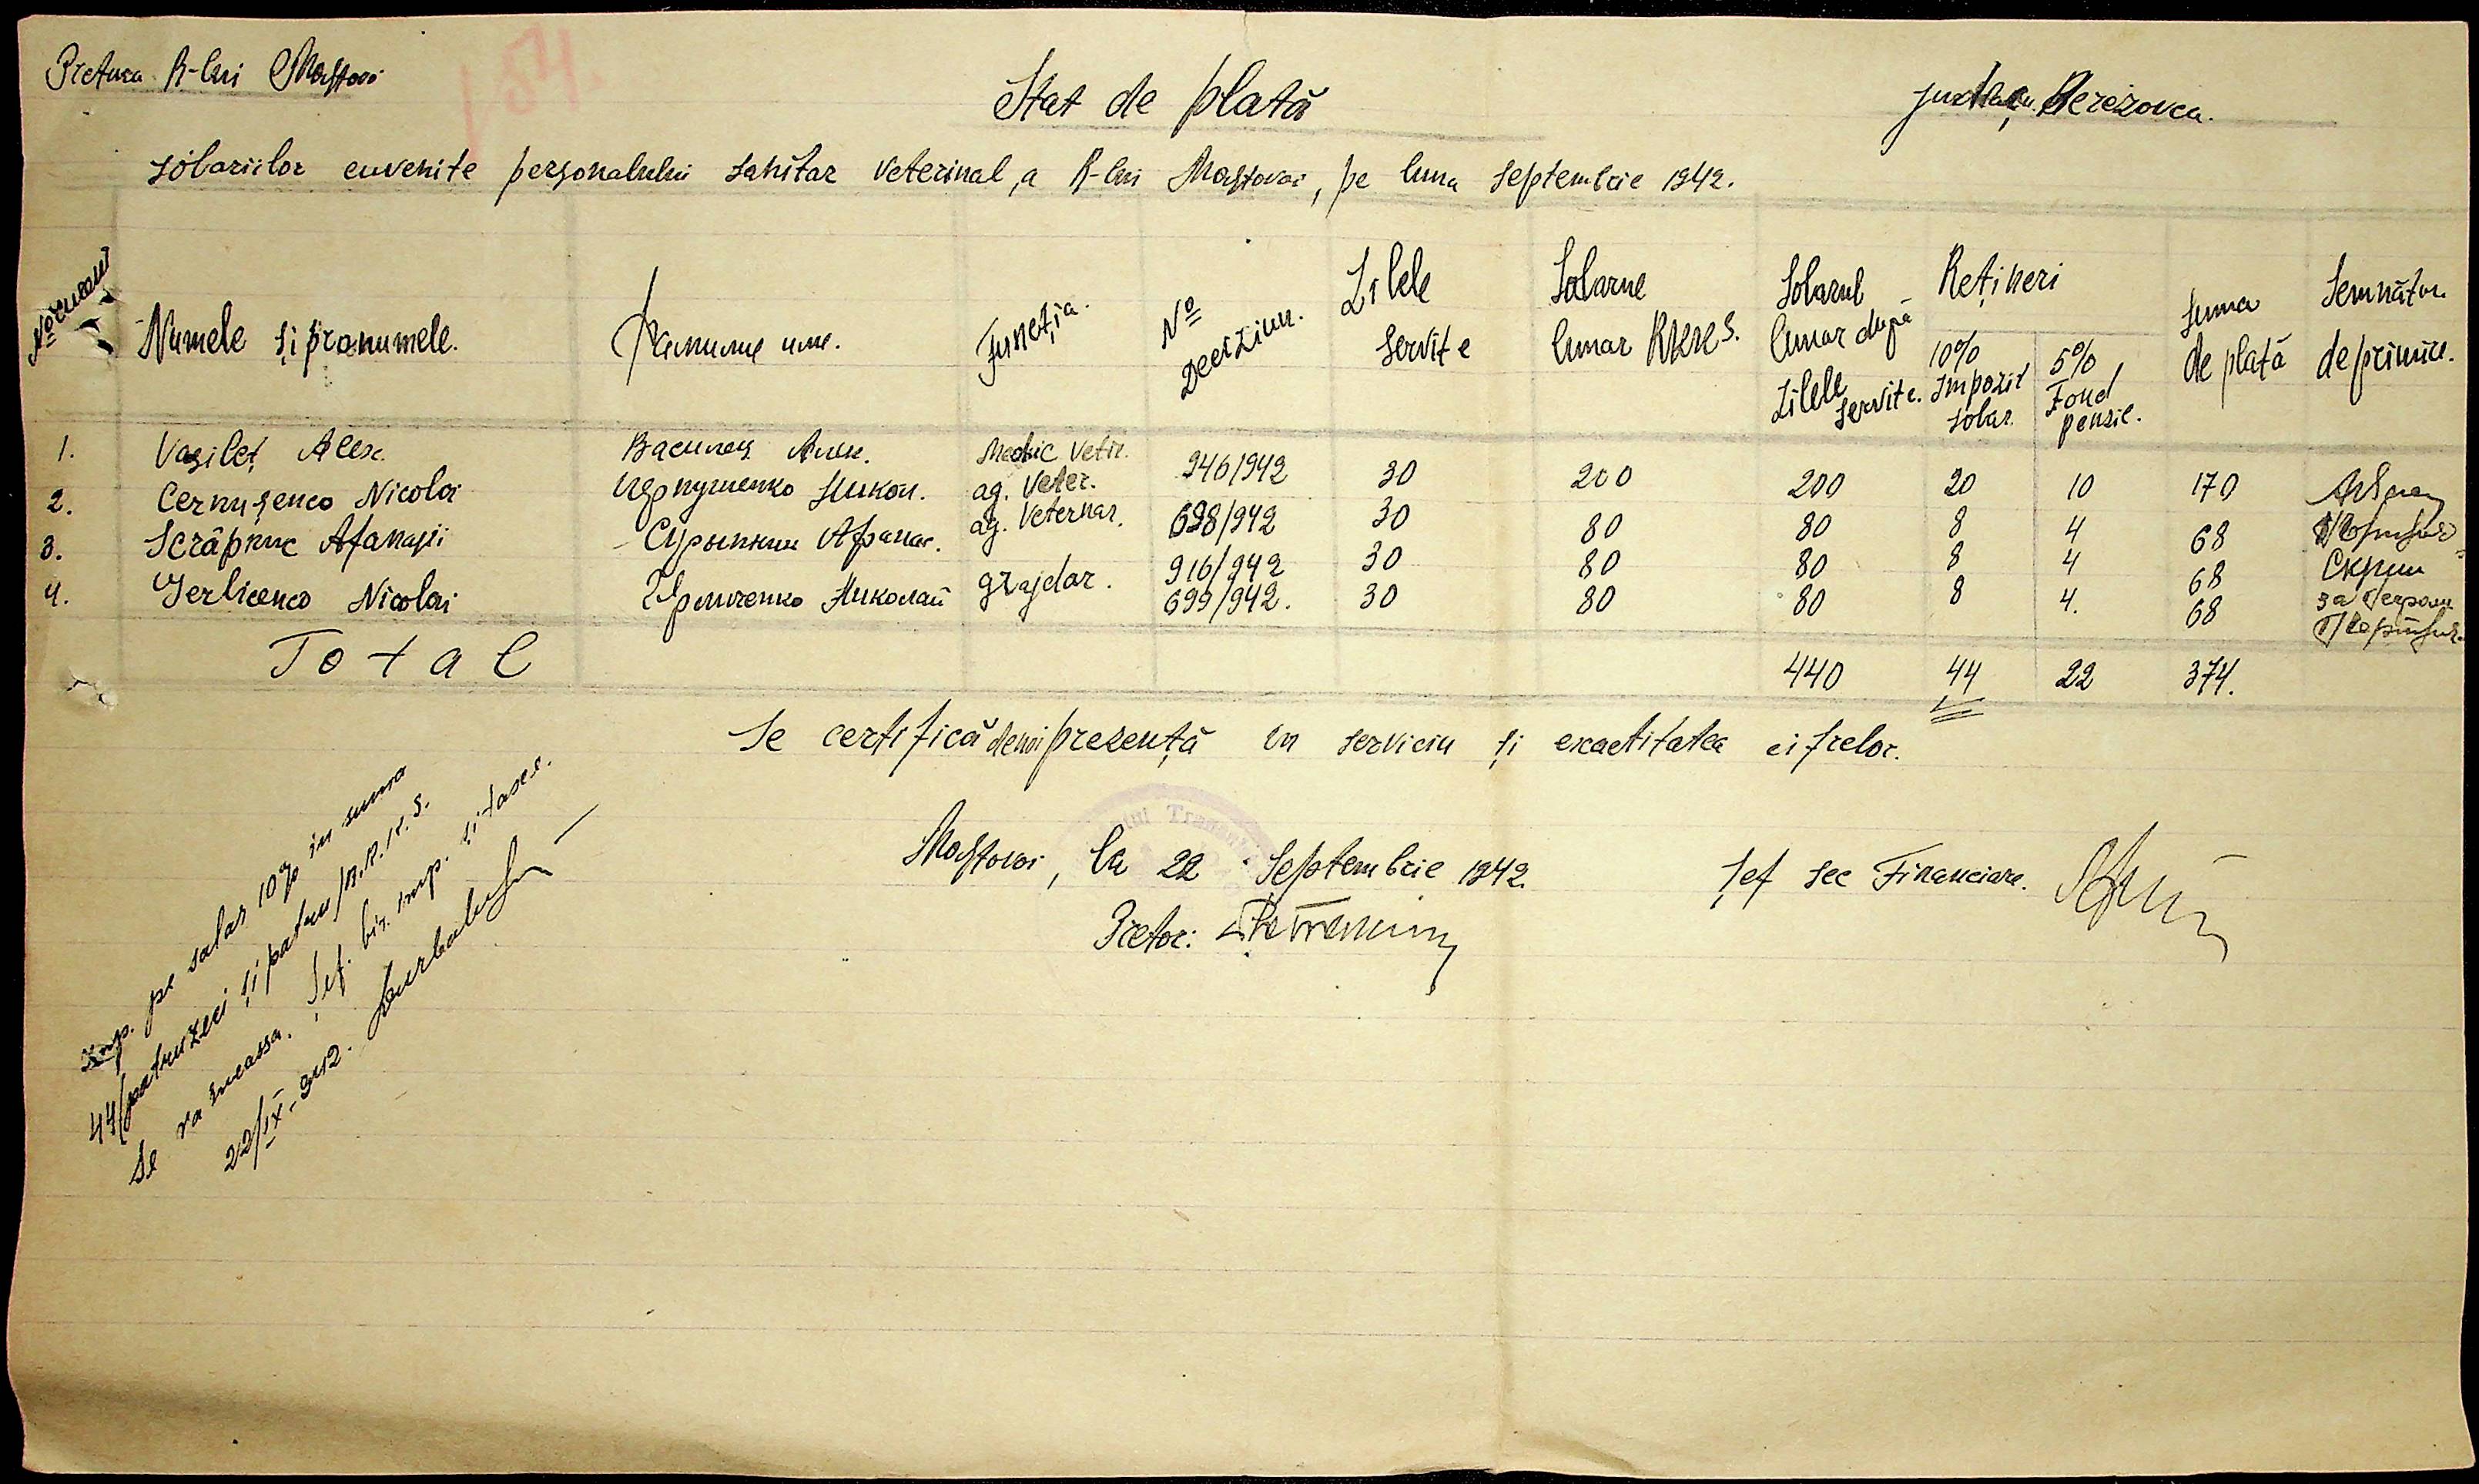 Pretura R-lui Mostovoi
154.
Stat de plată
județu Berezovca.
sólariilor cuvenite personalului sanitar veterinal, a R-lui Mostovoi, pe luna Septembrie 1942.
No curent
Numele și pronumele.
Фамилие име.
Funcția.
No Deciziun.
Zilele Servite
Solarue lunar RKKS.
Solarul lunar după Zilele servite.
Rețineri
10% Impozit solar.
5% Fond pensie.
Suma de plată
Semnătur. de primire.
1. Vasileț Alex. Василец Алек. Medic Vetir. 946/942 30 200 200 20 10 170
2. Cernușenco Nicolai Чернушенко Никол. ag. Veter. 698/942 30 80 80 8 4 68
3. Scrâpnic Afanasii Скрыпник Афанас. ag. Veternar. 916/942 30 80 80 8 4 68 Скрып
4. Gerlicenco Nicolai Герличенко Николай grajdar. 699/942. 30 80 80 8 4. 68 за
Total 440 44 22 374.
Se certifică de noi prezență in serviciu și exactitatea cifrelor.
Mostovoi, la 22 Septembrie 1942.
Șef sec Financiare.
Pretor:
Imp. pe salar 10% în suma
44/patruzeci și patru/R.R.K.S.
Se va incassa. Șef. bir. imp. și taxe.
22/IX-942.